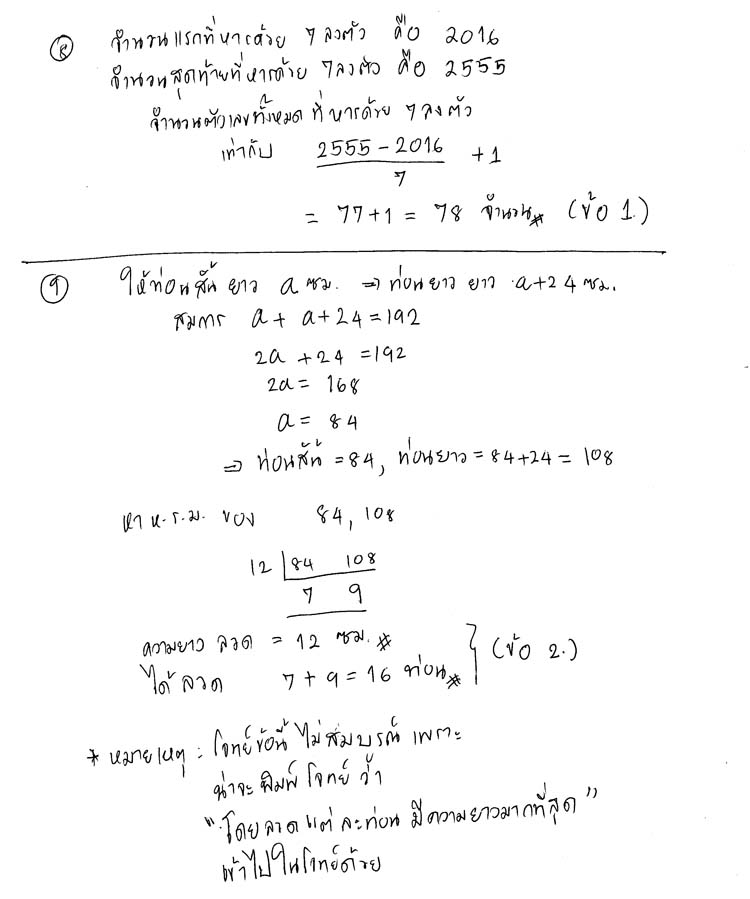 ⑧ จำนวนแรกที่หารด้วย 7 ลงตัว คือ 2016
จำนวนสุดท้ายที่หารด้วย 7 ลงตัว คือ 2555
จำนวนตัวเลขทั้งหมด ที่หารด้วย 7 ลงตัว
เท่ากับ 2555 - 2016 + 1
7
= 77+1 = 78 จำนวน # (ข้อ 1.)
⑨ ให้ท่อนสั้น ยาว a ซม. ⇒ ท่อนยาว ยาว a+24 ซม.
สมการ a + a+24 = 192
2a + 24 = 192
2a = 168
a = 84
⇒ ท่อนสั้น = 84, ท่อนยาว = 84+24 = 108
หา ห.ร.ม. ของ 84, 108
12 84 108
7 9
ความยาว ลวด = 12 ซม. #
ได้ ลวด 7 + 9 = 16 ท่อน # } (ข้อ 2.)
* หมายเหตุ : โจทย์ข้อนี้ ไม่สมบูรณ์ เพราะ
น่าจะ พิมพ์ โจทย์ ว่า
"โดยลวดแต่ละท่อน มีความยาวมากที่สุด"
เข้าไปในโจทย์ด้วย